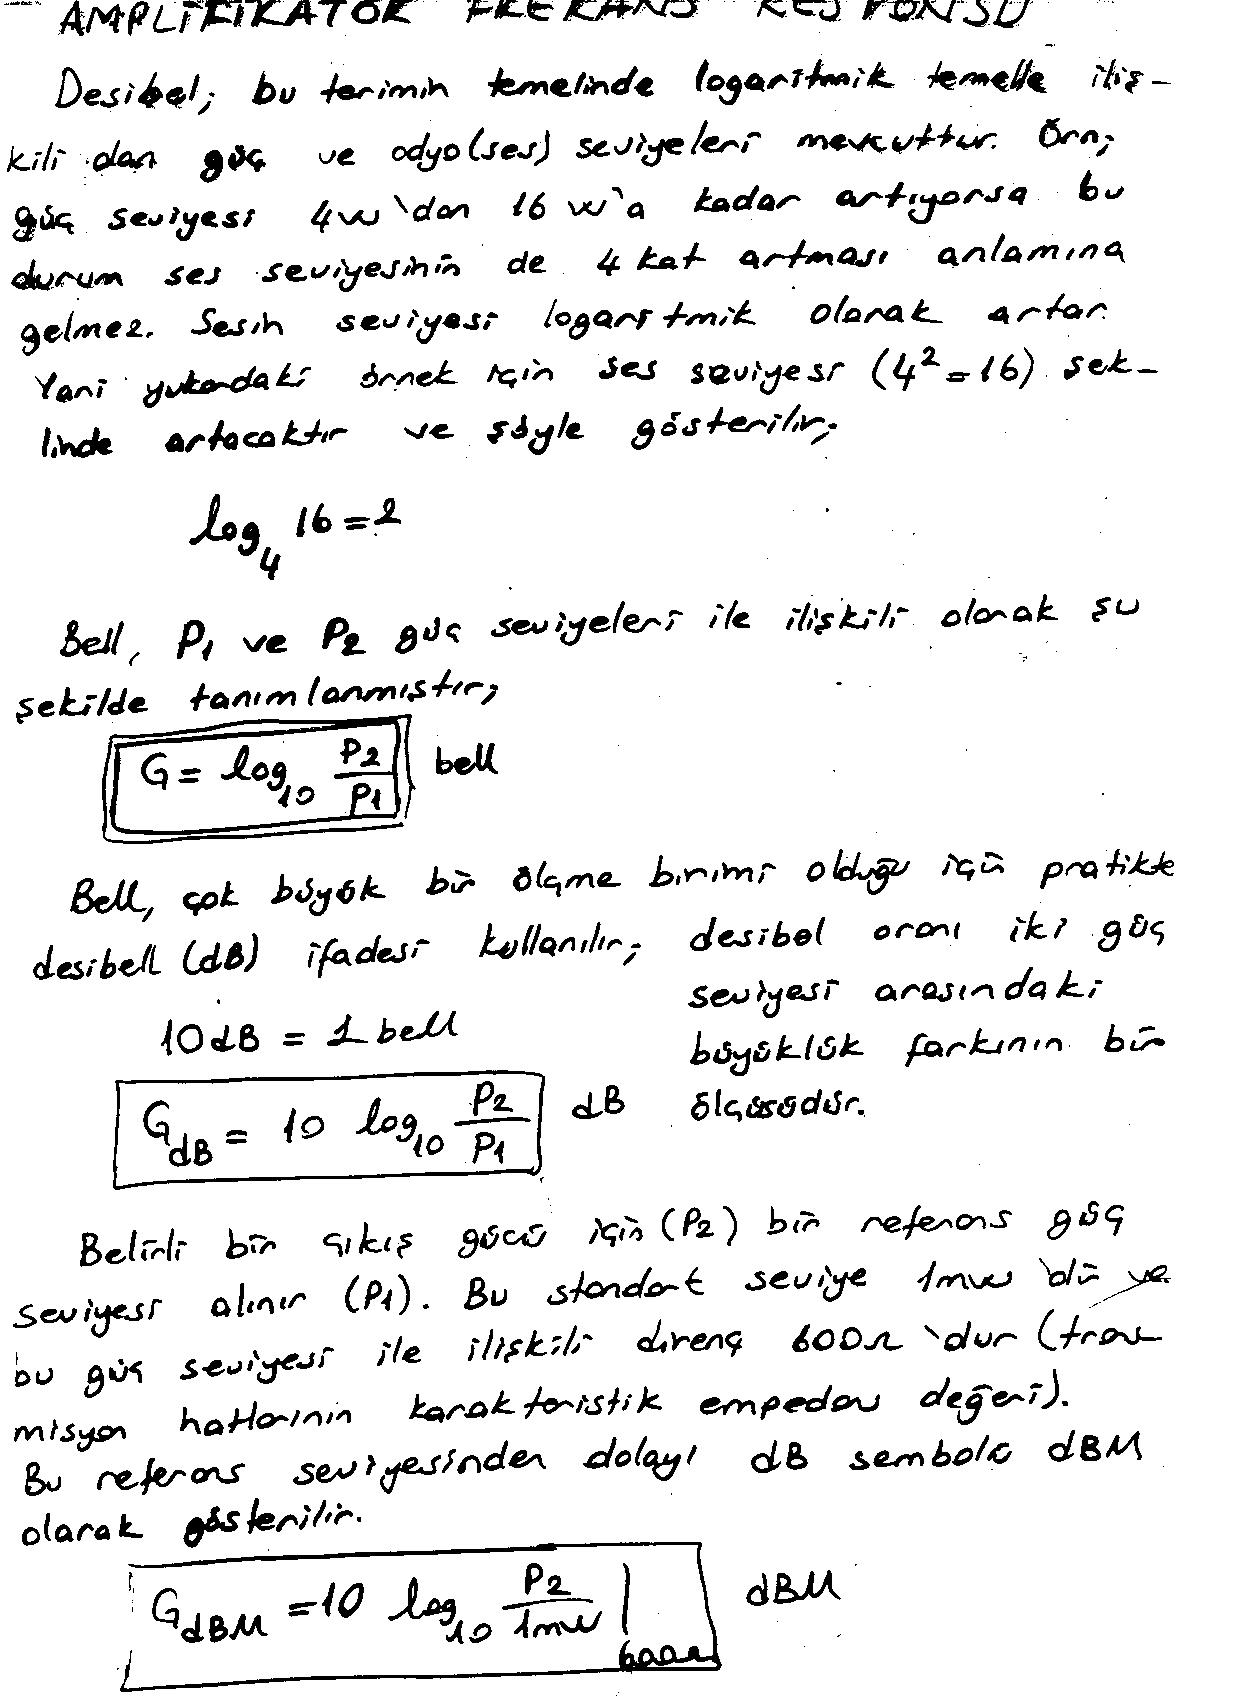 AMPLİFİKATÖR FREKANS RESPONSU
Desibel; bu terimin temelinde logaritmik temelle iliş-
kili olan güç ve odyo(ses) seviyeleri mevcuttur. Örn;
güç seviyesi 4w'dan 16 w'a kadar artıyorsa bu
durum ses seviyesinin de 4 kat artması anlamına
gelmez. Sesin seviyesi logaritmik olarak artar.
Yani yukardaki örnek için ses seviyesi (4²=16) şek-
linde artacaktır ve şöyle gösterilir;
log₄ 16=2
Bell, P₁ ve P₂ güç seviyeleri ile ilişkili olarak şu
şekilde tanımlanmıştır;
G = log₁₀ P₂/P₁ bell
Bell, çok büyük bir ölçme birimi olduğu için pratikte
desibell (dB) ifadesi kullanılır; desibel oranı iki güç
seviyesi arasındaki
10dB = 1 bell büyüklük farkının bir
G_dB = 10 log₁₀ P₂/P₁ dB ölçüsüdür.
Belirli bir çıkış gücü için (P₂) bir referans güç
seviyesi alınır (P₁). Bu standart seviye 1mw'dır ve
bu güç seviyesi ile ilişkili direnç 600Ω'dur (trans-
misyon hatlarının karakteristik empedans değeri).
Bu referans seviyesinden dolayı dB sembolü dBM
olarak gösterilir.
G_dBM = 10 log₁₀ P₂/1mw | 600Ω dBM